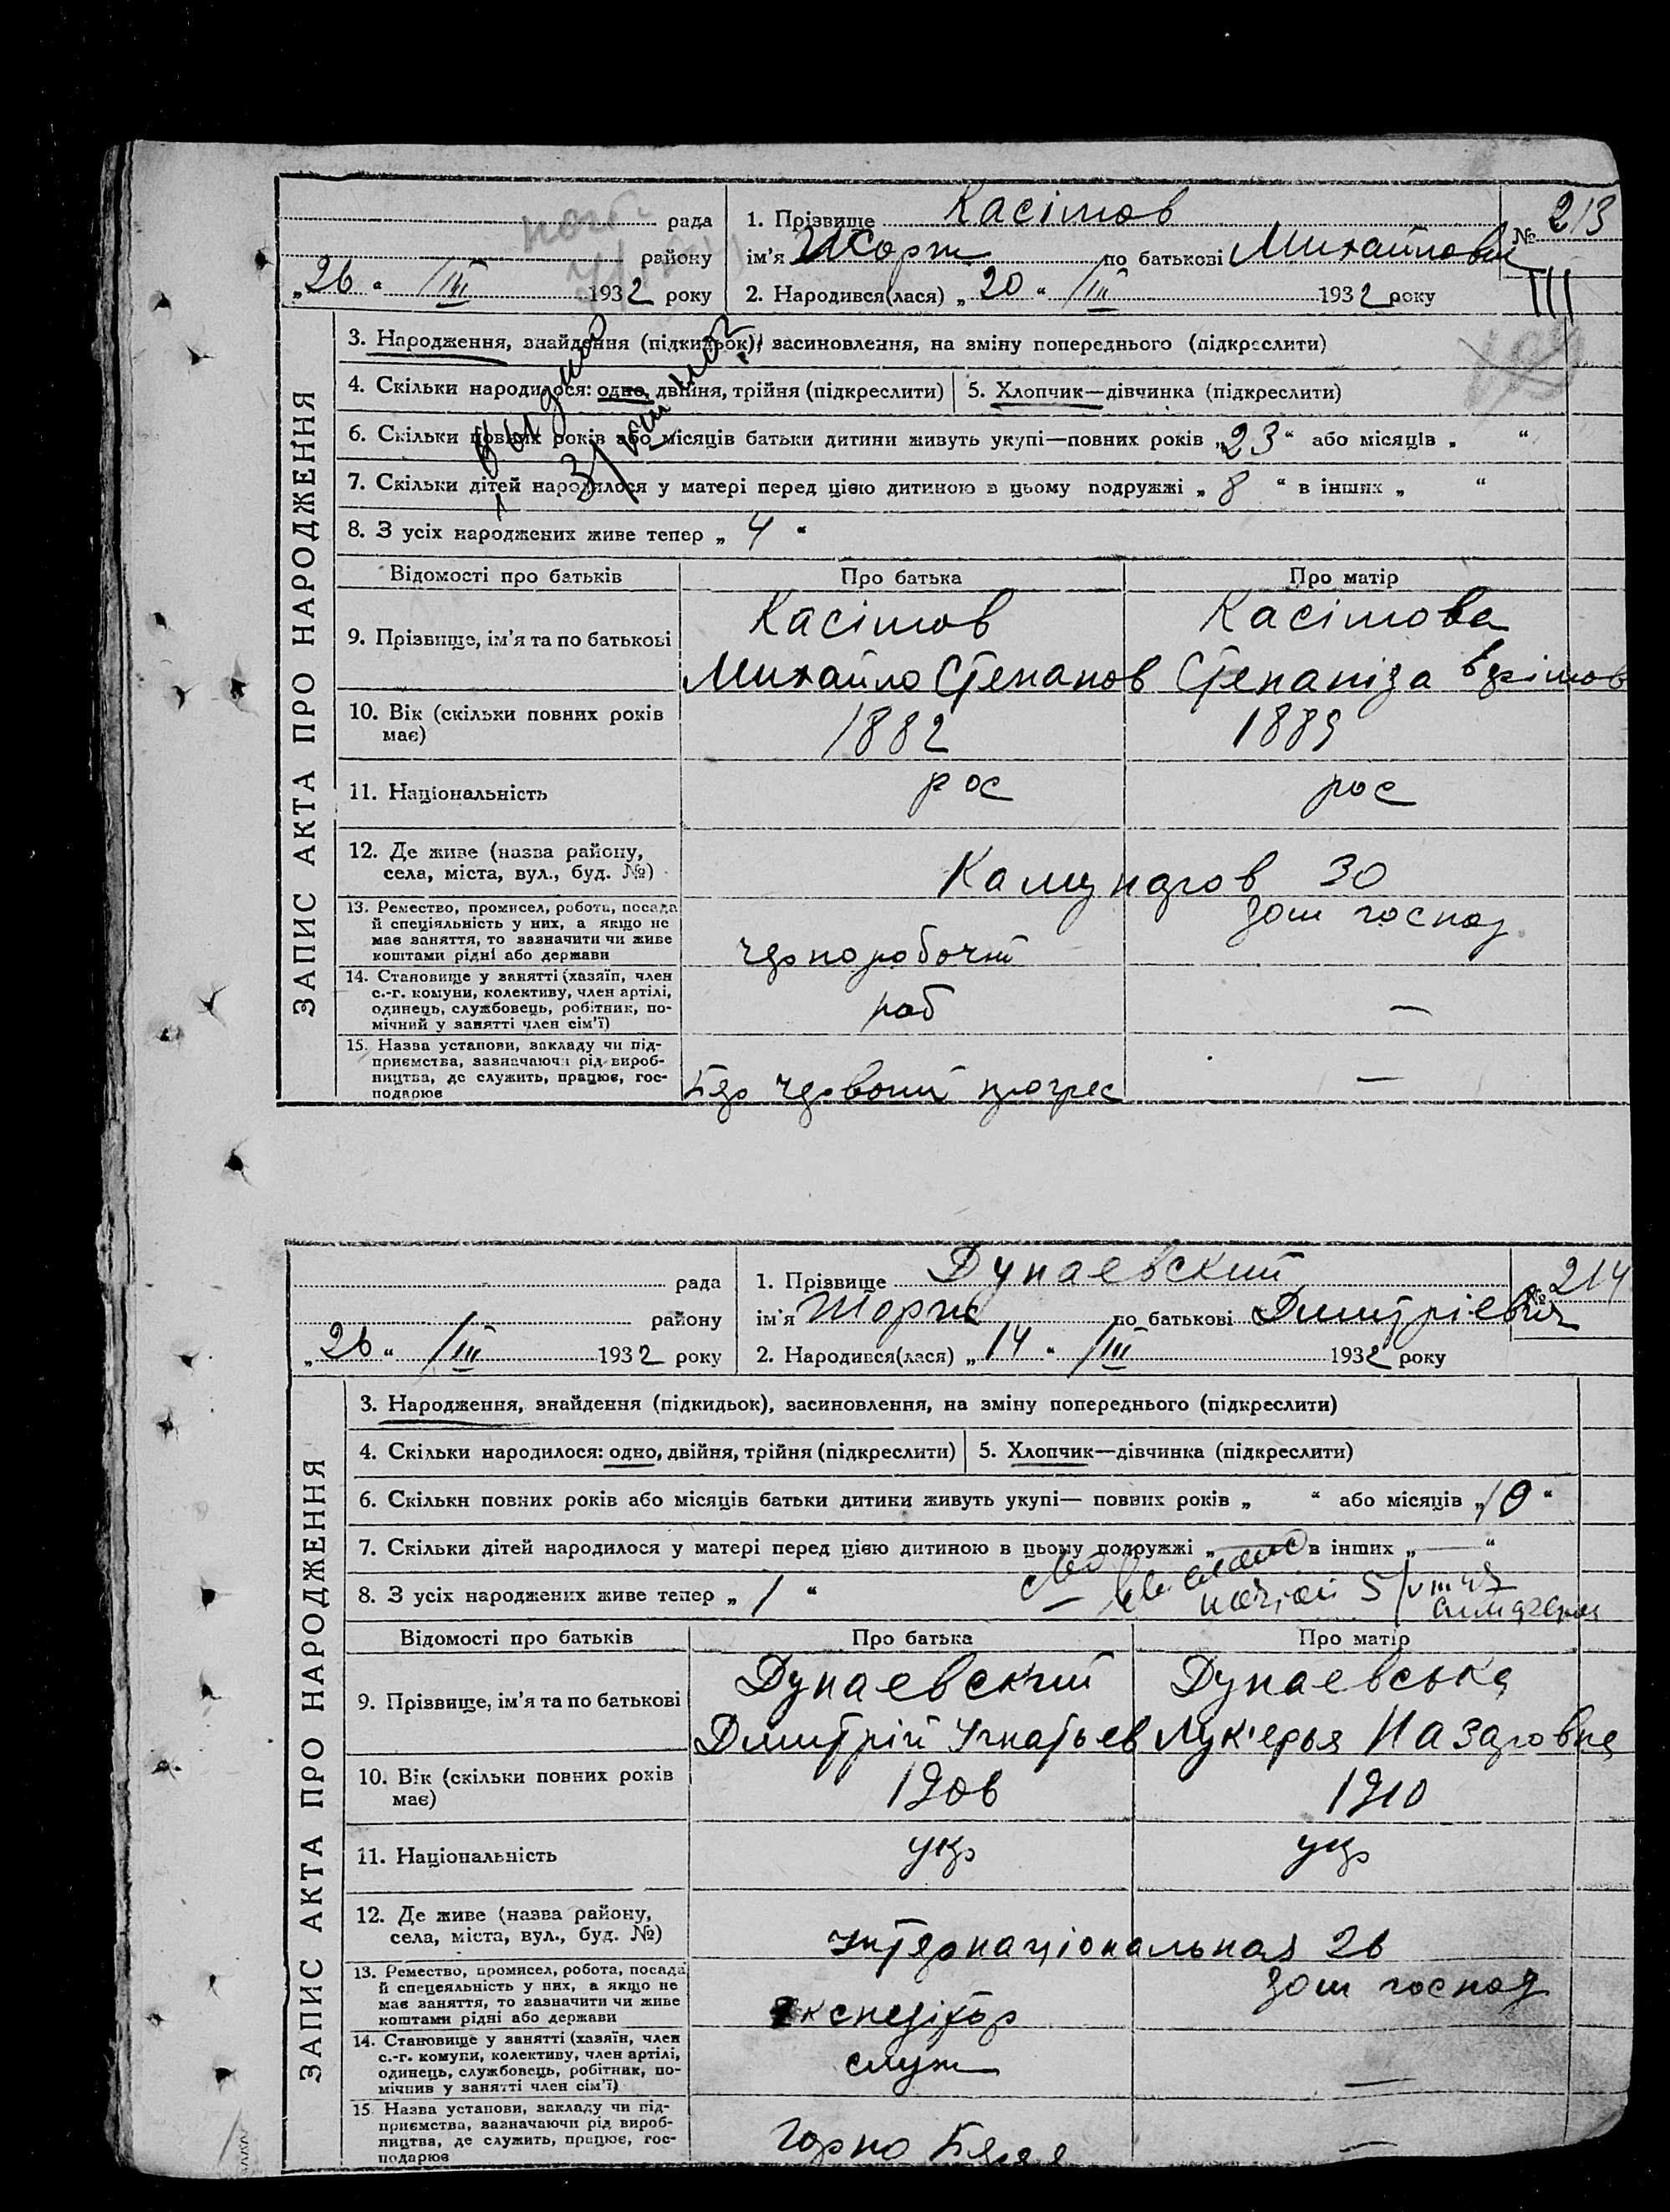 рада
району
„26“ /III 1932 року
1. Прізвище Касімов
ім'я Жорж по батькові Михайлович
2. Народився(лася) „20“ /III 1932 року
№ 213
III
ЗАПИС АКТА ПРО НАРОДЖЕННЯ
3. Народження, знайдення (підкидьок), засиновлення, на зміну попереднього (підкреслити)
4. Скільки народилося: одно, двійня, трійня (підкреслити) 5. Хлопчик—дівчинка (підкреслити)
6. Скільки повних років або місяців батьки дитини живуть укупі—повних років „23“ або місяців „ “
7. Скільки дітей народилося у матері перед цією дитиною в цьому подружжі „8“ в інших „ “
8. З усіх народжених живе тепер „4“
Відомості про батьків Про батька Про матір
9. Прізвище, ім'я та по батькові
Касімов Касімова
Михайло Степанов Степаніза
10. Вік (скільки повних років
має)
1882 1889
11. Національність рос рос
12. Де живе (назва району,
села, міста, вул., буд. №)
30
13. Ремество, промисел, робота, посада
й спеціяльність у них, а якщо не
має заняття, то зазначити чи живе
коштами рідні або держави
чорноробочий дом господ
14. Становище у занятті (хазяїн, член
с.-г. комуни, колективу, член артілі,
одинець, службовець, робітник, по-
мічний у занятті член сім'ї)
роб —
15. Назва установи, закладу чи під-
приємства, зазначаючи рід вироб-
ництва, де служить, працює, гос-
подарює
червоний прогрес —
рада
району
„26“ /III 1932 року
1. Прізвище Дунаевский
ім'я Жорж по батькові Дмитріевич
2. Народився(лася) „14“ /III 1932 року
№ 214
ЗАПИС АКТА ПРО НАРОДЖЕННЯ
3. Народження, знайдення (підкидьок), засиновлення, на зміну попереднього (підкреслити)
4. Скільки народилося: одно, двійня, трійня (підкреслити) 5. Хлопчик—дівчинка (підкреслити)
6. Скільки повних років або місяців батьки дитини живуть укупі— повних років „ “ або місяців „10“
7. Скільки дітей народилося у матері перед цією дитиною в цьому подружжі „—“ в інших „—“
8. З усіх народжених живе тепер „1“
Відомості про батьків Про батька Про матір
9. Прізвище, ім'я та по батькові
Дунаевский Дунаевська
Дмитрій Ігнатьев Лук'ерья Назаровна
10. Вік (скільки повних років
має)
1906 1910
11. Національність укр укр
12. Де живе (назва району,
села, міста, вул., буд. №)
Інтернаціональная 26
13. Ремество, промисел, робота, посада
й спецеяльність у них, а якщо не
має заняття, то зазначити чи живе
коштами рідні або держави
експедітор дом господ
14. Становище у занятті (хазяїн, член
с.-г. комуни, колективу, член артілі,
одинець, службовець, робітник, по-
мічнив у занятті член сім'ї)
служ —
15. Назва установи, закладу чи під-
приємства, зазначаючи рід вироб-
ництва, де служить, працює, гос-
подарює
—